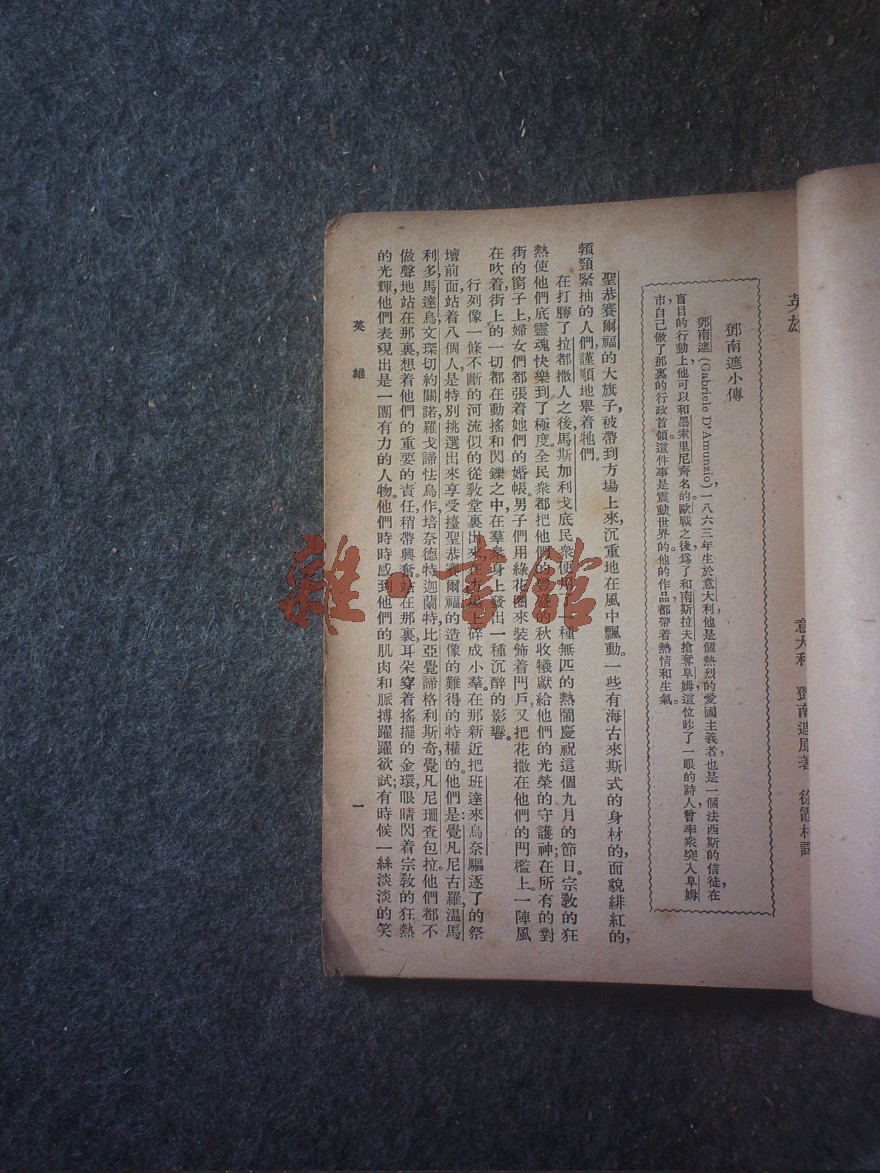 英雄
意大利 鄧南遮原著 徐霞村譯
鄧南遮小傳
鄧南遮(Gabriele D'Amunzio),一八六三年生於意大利,他是個熱烈的愛國主義者,也是一個法西斯的信徒,在
盲目的行動上,他可以和墨索里尼齊名的。歐戰之後,爲了和南斯拉夫搶奪阜姆,這位眇了一眼的詩人曾率衆突入阜姆
市,自己做了那裏的行政首領,這件事是震動世界的。他的作品都帶着熱情和生氣。
聖恭賽爾福的大旗子,被帶到方場上來,沉重地在風中飄動。一些有海古來斯式的身材的,面貌緋紅的,
頸緊抽的人們,謹順地舉着牠們。
在打勝了拉都撒人之後,馬斯加利戈底民衆便用一種無匹的熱鬧慶祝這個九月的節日。宗敎的狂
熱使他們底靈魂快樂到了極度。全民衆都把他們的豐的秋收犧獻給他們的光榮的守護神;在所有的對
街的窗子上,婦女們都張着她們的婚帳。男子們用綠花圈來裝飾着門戶,又把花撒在他們的門檻上。一陣風
在吹着,街上的一切都在動搖和閃鑠之中,在羣衆身上發出一種沉醉的影響。
行列像一條不斷的河流似的從敎堂裏出來,在方場上碎成小羣。在那新近把班達來烏奈驅逐了的祭
壇前面站着八個人,是特別挑選出來享受擡聖恭賽爾福的造像的難得的特權的。他們是:覺凡尼古羅,溫馬
利多,馬達烏,文琛切約關諾,羅戈諦怯烏,作培奈德特,迦蘭特,比亞覺諦格利斯奇,覺凡尼珊查包拉。他們都不
做聲地站在那裏,想着他們的重要的責任,稍帶興奮。站在那裏,耳朵穿着搖擺的金環,眼睛閃着宗敎的狂熱
的光輝,他們表現出是一團有力的人物。他們時時感到他們的肌肉和脈搏躍躍欲試;有時候一絲淡淡的笑
英雄
一
雜·書館